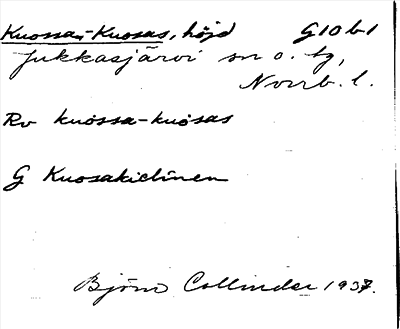 Kuossa-Kuosas, höjd G10b1
Jukkasjärvi sn o. tg,
Norrb. l.
Rv kuossa-kuosas
G Kuosakielinen
Björn Collinder 1937.